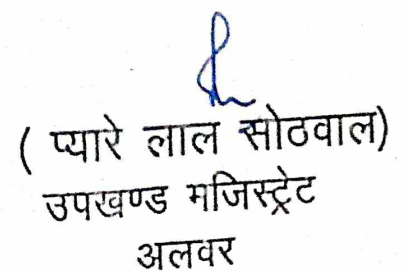 ( प्यारे लाल सोठवाल)
उपखण्ड मजिस्ट्रेट
अलवर